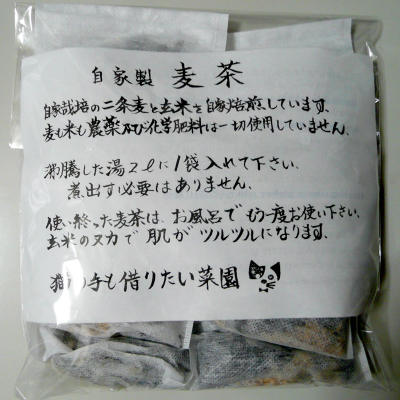 自家製 麦茶
自家栽培の二条麦と玄米を自家焙煎しています。
麦も米も農薬及び化学肥料は一切使用していません。
沸騰した湯2ℓに1袋入れて下さい。
煮出す必要はありません。
使い終った麦茶は、お風呂でもう一度お使い下さい。
玄米のヌカで肌がツルツルになります。
猫の手も借りたい菜園